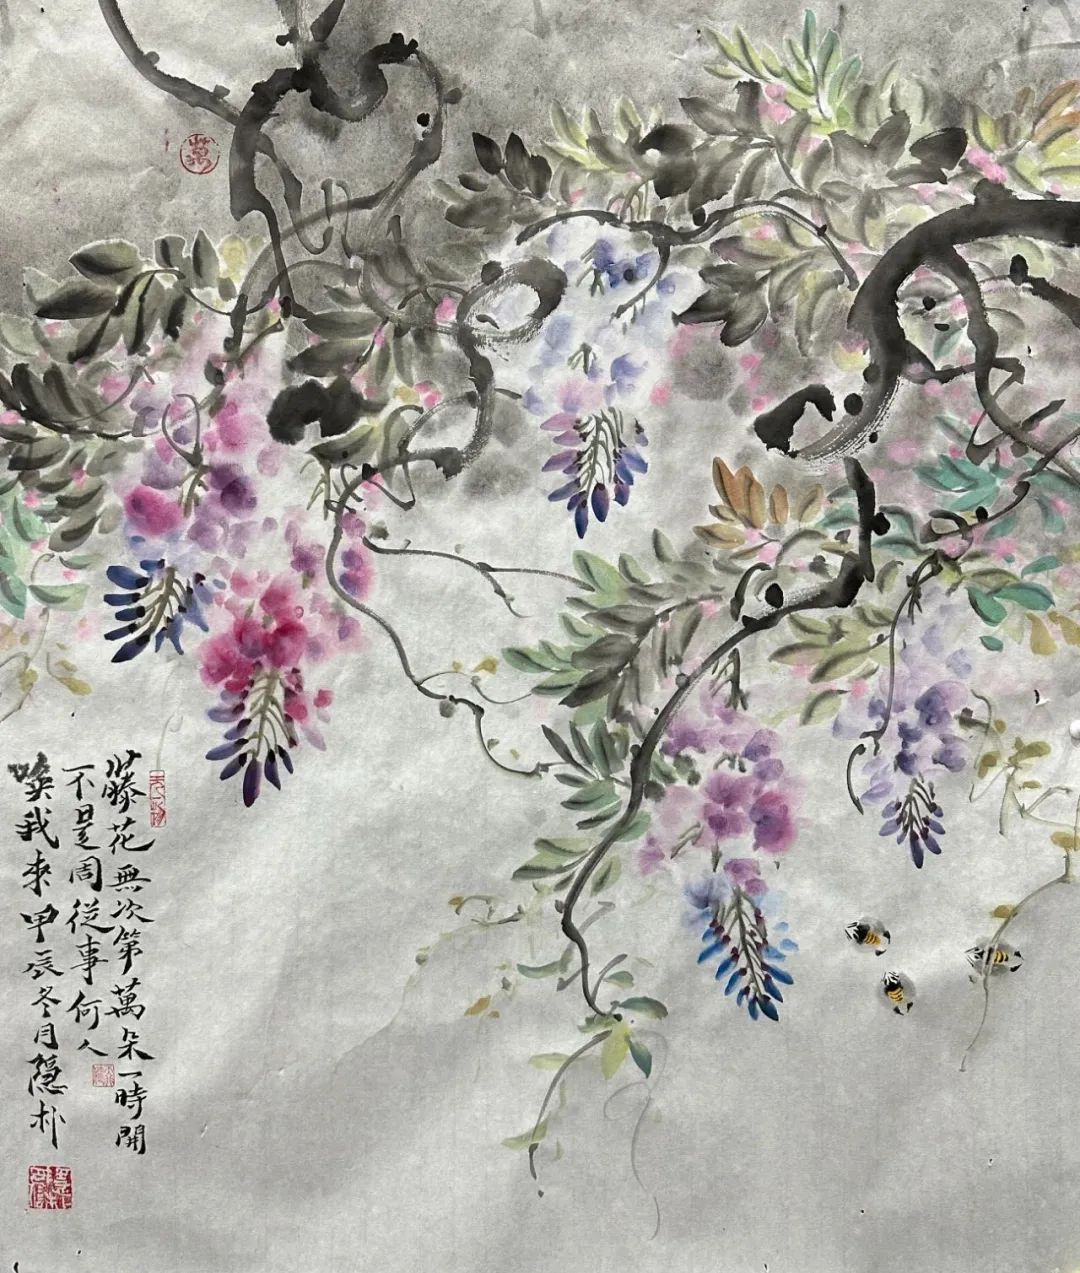 藤花無次第萬朵一時開
不是周從事何人
喚我來甲辰冬月隐朴